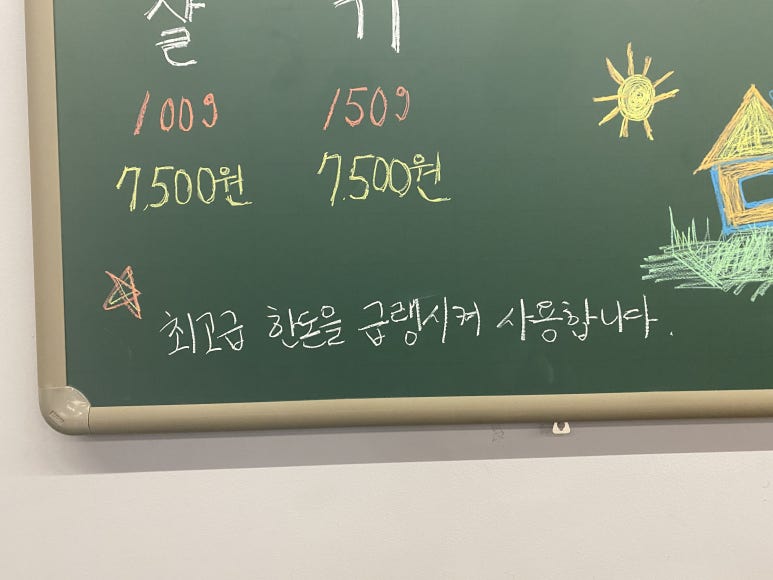 살 기
100g 150g
7,500원 7.500원
최고급 한돈을 급랭시켜 사용합니다.